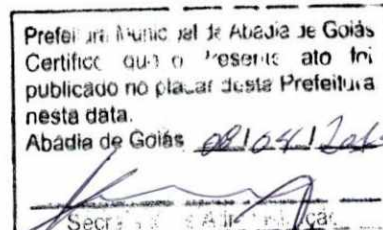 Prefeitura Municipal de Abadia de Goiás
Certifico que o presente ato foi
publicado no placar desta Prefeitura
nesta data.
Abadia de Goiás 08/04/